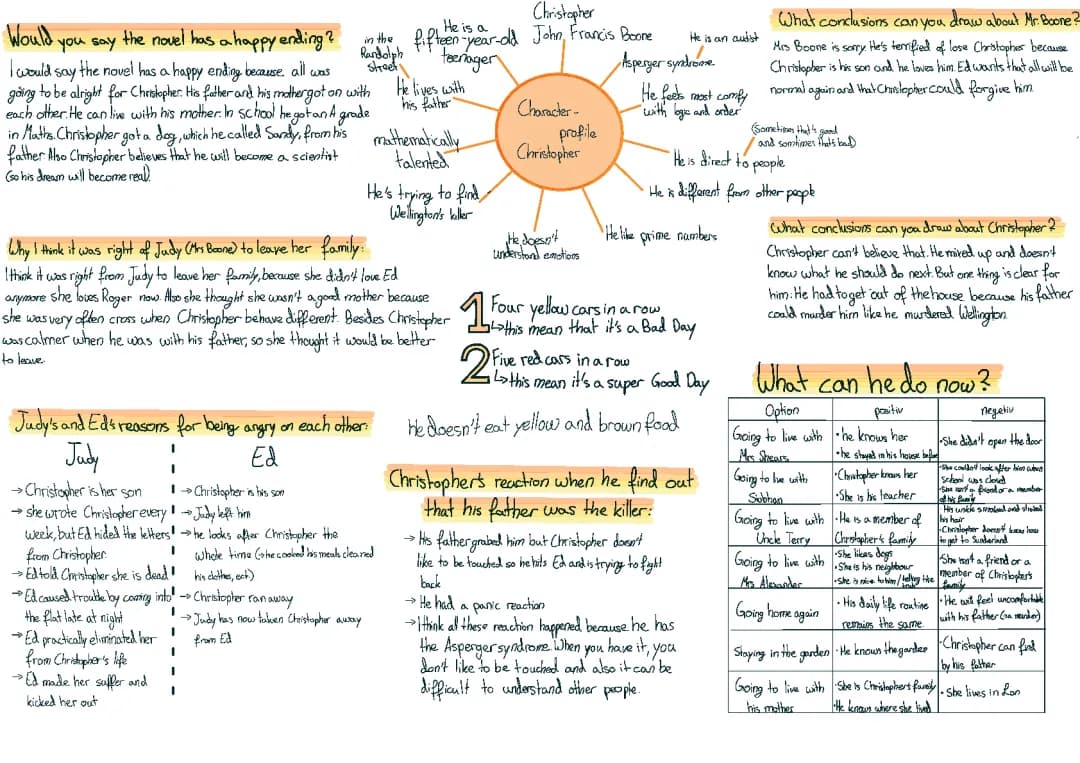 Would you say the novel has a happy ending?
I would say the novel has a happy ending because all was
going to be alright for Christopher. His father and his mother got on with
each other. He can live with his mother. In school he got an A grade
in Maths. Christopher got a dog, which he called Sandy, from his
father Also Christopher believes that he will become a scientist
(so his dream will become real).
Why I think it was right of Judy (Mrs Boone) to leave her family:
I think it was right from Judy to leave her family, because she didn't love Ed
anymore she loves Roger now. Also she thought she wasn't a good mother because
she was very often cross when Christopher behave different. Besides Christopher
was calmer when he was with his father, so she thought it would be better
to leave.
Judy's and Ed's reasons for being angry on each other:
Judy
→ Christopher is her son
→ she wrote Christopher every
week, but Ed hided the letters
from Christopher
→ Ed told Christopher she is dead
→ Ed caused trouble by coming into
the flat late at night
→ Ed practically eliminated her
from Christopher's life
→ Ed made her suffer and
kicked her out
Ed
→ Christopher is his son
→ Judy left him
→ he looks after Christopher the
whole time (→ he cooked his meals, cleaned
his clothes, ect)
→ Christopher ran away
→ Judy has now taken Christopher away
from Ed
Character-
profile
Christopher
Christopher
John Francis Boone
He is an autist
Asperger syndrome
He feels most comfy
with logic and order
(Sometimes that's good
and somtimes that's bad)
He is direct to people
He is different from other people
He like prime numbers
He doesn't
understand emotions
He's trying to find
Wellington's killer
mathematically
talented
He lives with
his father
in the
Randolph
street
He is a
fifteen-year-old
teenager
1 Four yellow cars in a row
↳ this mean that it's a Bad Day
2 Five red cars in a row
↳ this mean it's a super Good Day
He doesn't eat yellow and brown food
Christopher's reaction when he find out
that his father was the killer:
→ His father grabed him but Christopher doesn't
like to be touched so he hits Ed and is trying to fight
back
→ He had a panic reaction
→ I think all these reaction happened because he has
the Asperger syndrome. When you have it, you
don't like to be touched and also it can be
difficult to understand other people.
What conclusions can you draw about Mr. Boone?
Mrs Boone is sorry. He's terrified of lose Christopher because
Christopher is his son and he loves him. Ed wants that all will be
normal again and that Christopher could forgive him.
What conclusions can you draw about Christopher?
Christopher can't believe that. He mixed up and doesn't
know what he should do next. But one thing is clear for
him: He had to get out of the house because his father
could murder him like he murdered Wellington.
What can he do now?
Option positiv negetiv
Going to live with
Mrs Shears
• he knows her
• he stayed in his house before
• She didn't open the door
Going to live with
Siobhan
• Christopher knows her
• She is his teacher
• She couldn't look after him when
school was closed
• She isn't a friend or a member
of his family
Going to live with
Uncle Terry
• He is a member of
Christopher's family
• His unkle smoked and stroked
his hair
• Christopher doesn't know how
to get to Sunderland
Going to live with
Mrs Alexander
• She likes dogs
• She is his neighbour
• She is nice to him / telling the
• She isn't a friend or a
member of Christopher's
family
Going home again
• His daily life routine
remains the same
• He will feel uncomfortable
with his father
Staying in the garden
• He knows the garden
• Christopher can find
by his father
Going to live with
his mother
• She is Christopher's family
• He knows where she lived
• She lives in Lon